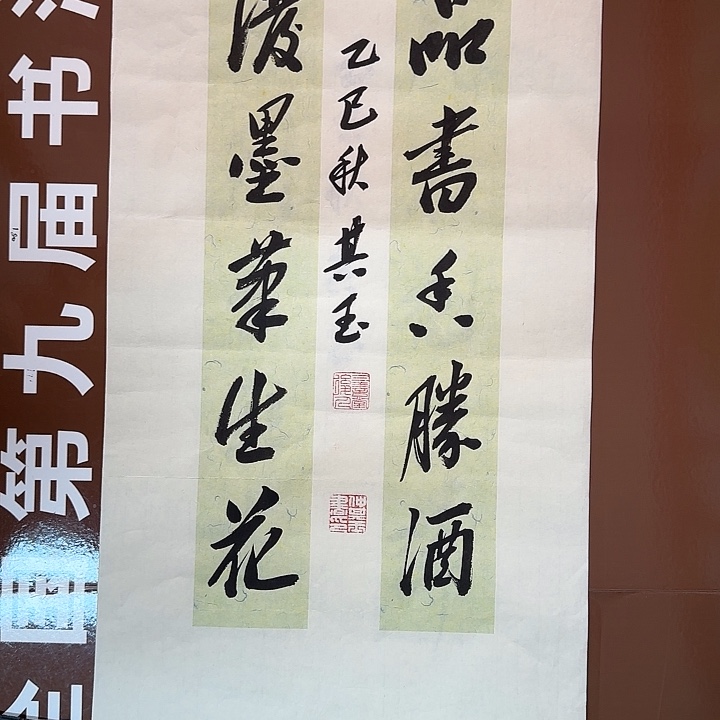 品書香勝酒
乙巳秋其玉
潑墨筆生花
全国第九届书法